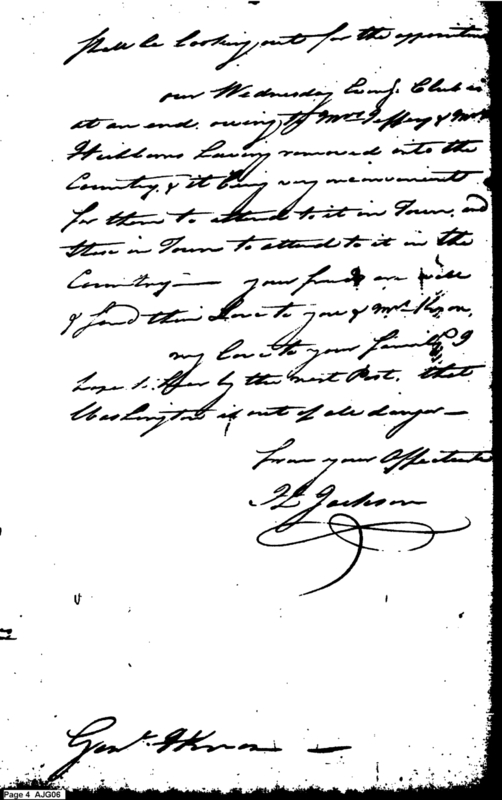 shall be looking out for the appointm
our Wednesday Eveng. Club is
at an end. owing to Mrs. Jeffery & Mrs
Hubbard having removed into the
Country, & it being very inconvenient
for them to attend to it in Town, and
those in Town to attend to it in the
Country — your friends are well
& send their Love to you & Mrs. Knox,
my love to your family I
hope to hear by the next Post, that
Washington is out of all danger —
from your Affectionate
H Jackson
Genl. H Knox —
Page 4 AJG06